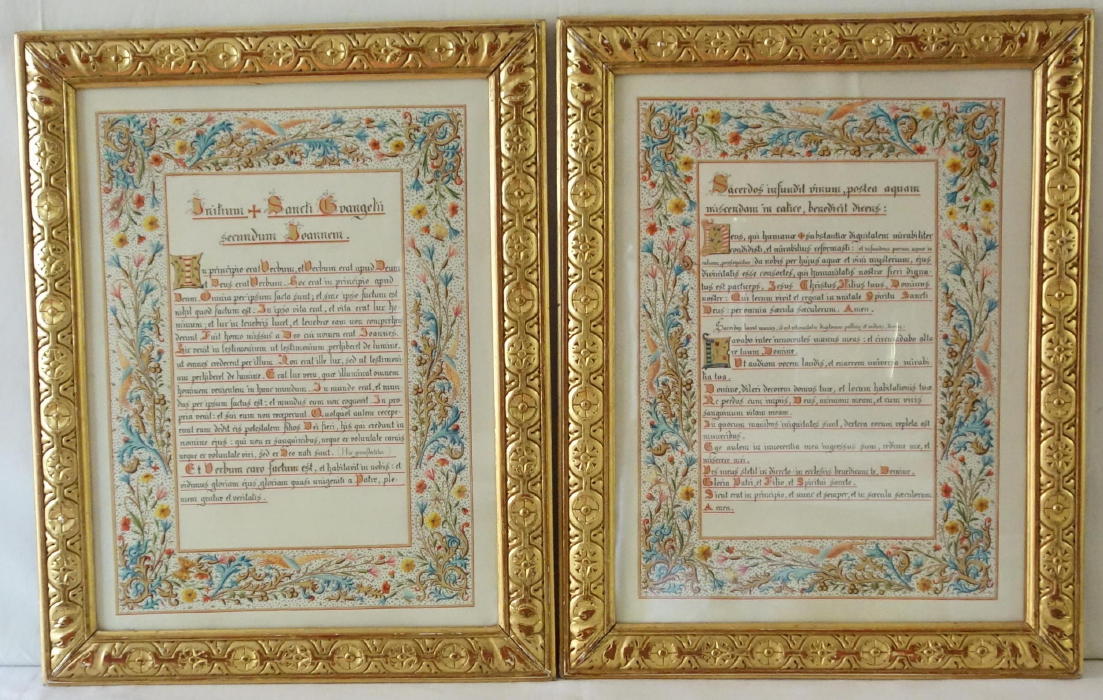 Initium + Sancti Evangelii
secundum Joannem.
In principio erat Verbum, et Verbum erat apud Deum
et Deus erat Verbum. Hoc erat in principio apud
Deum. Omnia per ipsum facta sunt; et sine ipso factum est
nihil quod factum est. In ipso vita erat, et vita erat lux ho
minum; et lux in tenebris lucet, et tenebræ eam non comprehen
derunt. Fuit homo missus a Deo cui nomen erat Joannes.
Hic venit in testimonium ut testimonium perhiberet de lumine,
ut omnes crederent per illum. Non erat ille lux, sed ut testimoni
um perhiberet de lumine. Erat lux vera, quæ illuminat omnem
hominem venientem in hunc mundum. In mundo erat, et mun
dus per ipsum factus est: et mundus eum non cognovit. In pro
pria venit: et sui eum non receperunt. Quotquot autem recepe-
runt eum dedit eis potestatem filios Dei fieri, his qui credunt in
nomine ejus: qui non ex sanguinibus, neque ex voluntate carnis
neque ex voluntate viri, sed ex Deo nati sunt. Hic genuflectitur
Et Verbum caro factum est, et habitavit in nobis: et
vidimus gloriam ejus, gloriam quasi unigeniti a Patre, ple-
num gratiæ et veritatis.
Sacerdos infundit vinum, postea aquam
miscendam in calice, benedicit dicens:
Deus, qui humanæ + substantiæ dignitatem mirabiliter
condidisti, et mirabilius reformasti: et infundens parum aquæ in
calicem, prosequitur da nobis per hujus aquæ et vini mysterium, ejus
divinitatis esse consortes, qui humanitatis nostræ fieri digna-
tus est particeps, Jesus Christus Filius tuus, Dominus
noster: Qui tecum vivit et regnat in unitate Spiritu Sancti
Deus: per omnia sæcula sæculorum. Amen.
Sacerdos lavat manus,
Lavabo inter innocentes manus meas: et circumdabo alta
re tuum Domine.
Ut audiam vocem laudis, et enarrem universa mirabi
lia tua.
Domine, dilexi decorem domus tuæ, et locum habitationis tuæ
Ne perdas cum impiis, Deus, animam meam, et cum viris
sanguinum vitam meam.
In quorum manibus iniquitates sunt, dextera eorum repleta est
muneribus.
Ego autem in innocentia mea ingressus sum, redime me, et
miserere mei.
Pes meus stetit in directo: in ecclesiis benedicam te, Domine.
Gloria Patri, et Filio, et Spiritui sancto.
Sicut erat in principio, et nunc et semper, et in sæcula sæculorum.
Amen.